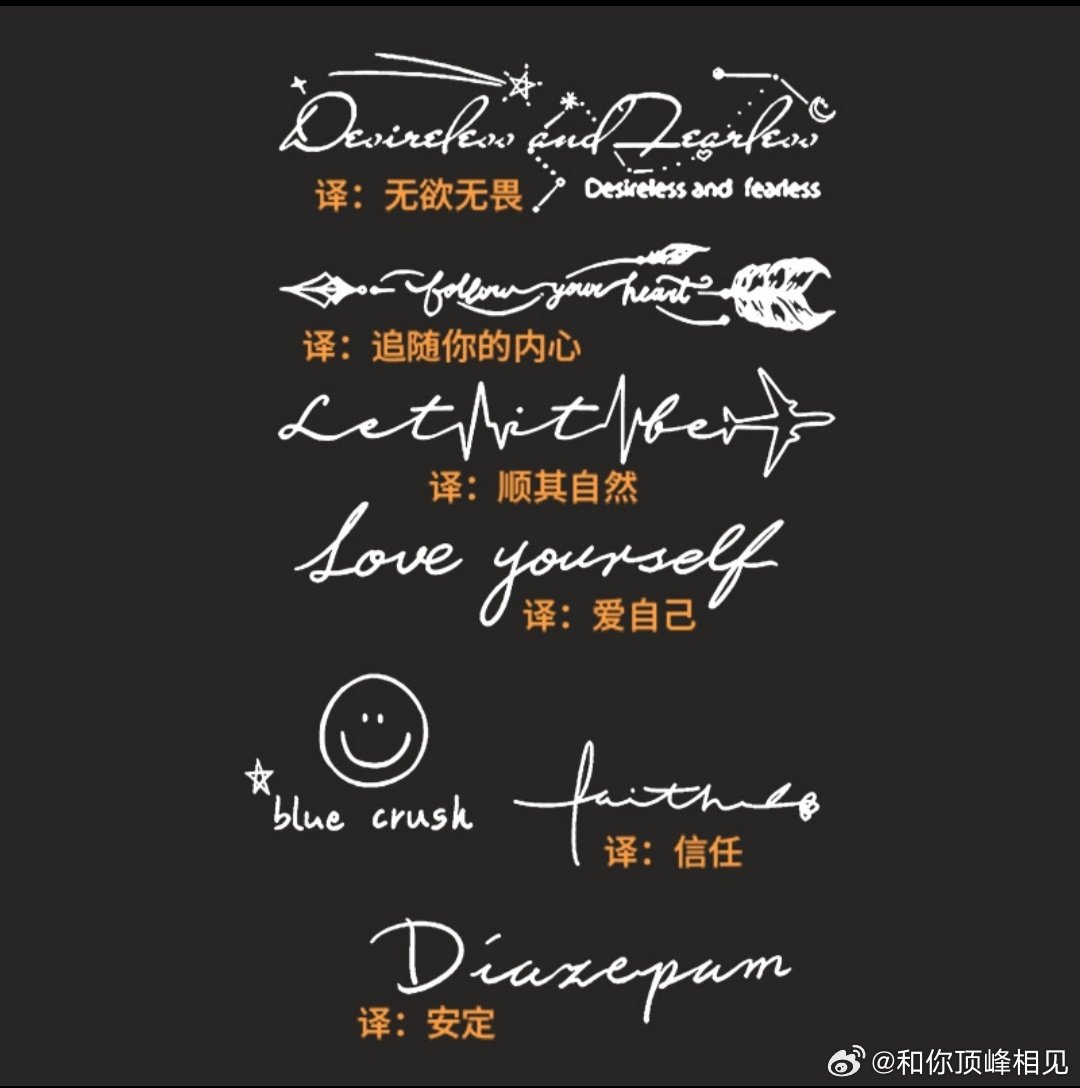 Desireless and Fearless
Desireless and fearless
译：无欲无畏
follow your heart
译：追随你的内心
Let it be
译：顺其自然
Love yourself
译：爱自己
blue crush
faith
译：信任
Diazepam
译：安定
@和你顶峰相见